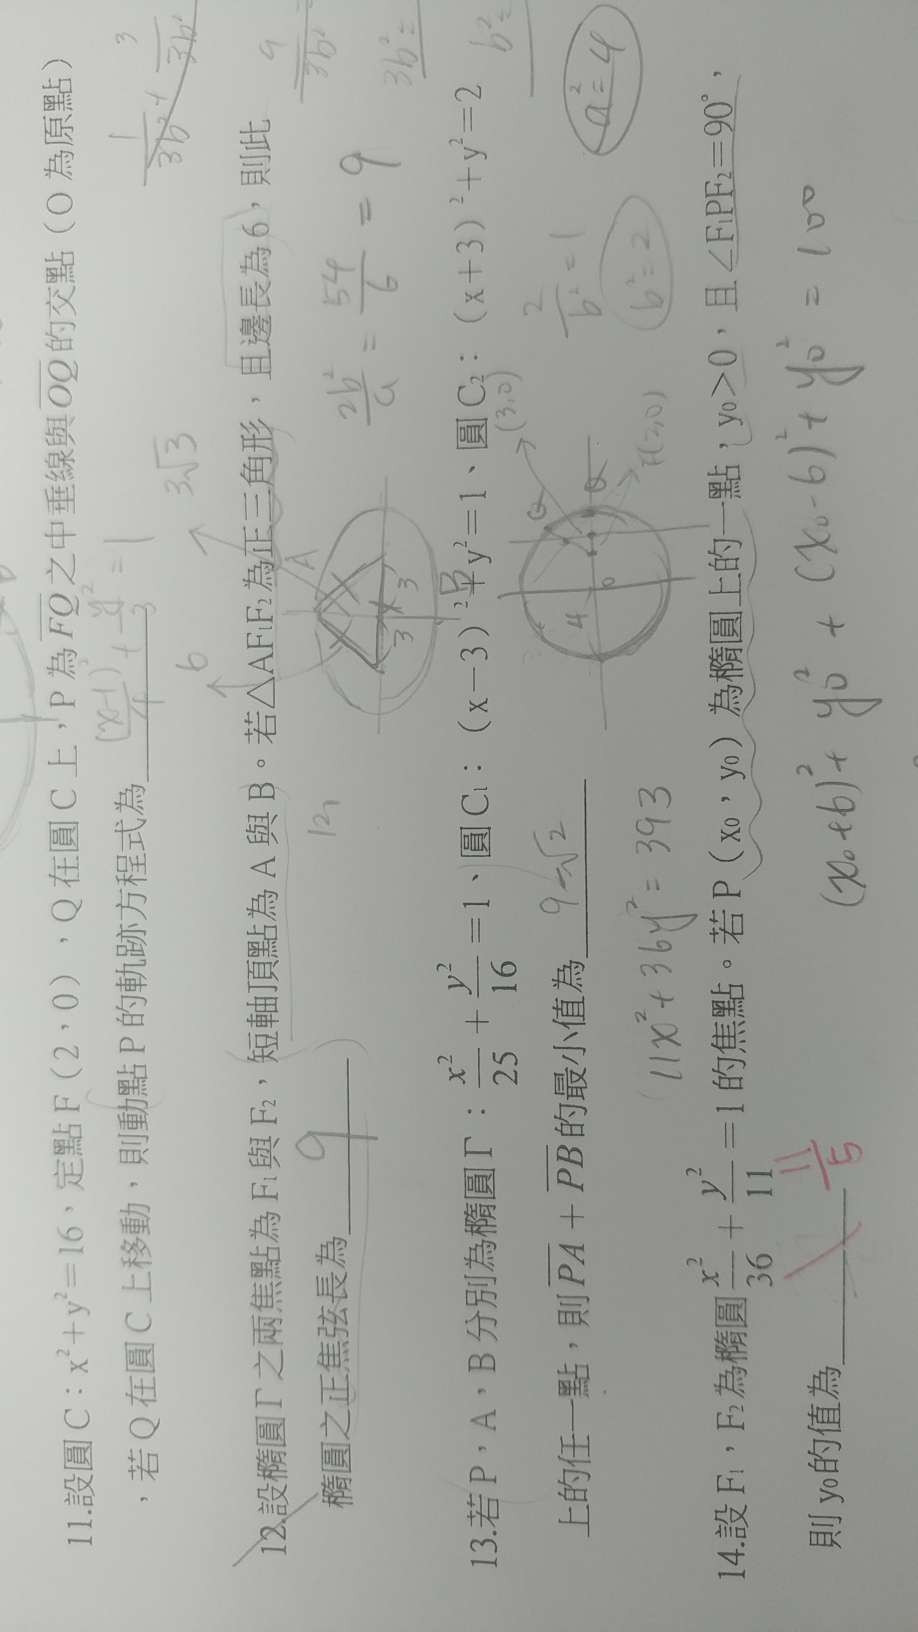 11.設圓C：x²+y²=16，定點F（2，0），Q在圓C上，P為FQ之中垂線與OQ的交點（O為原點）
，若Q在圓C上移動，則動點P的軌跡方程式為 (x-1)²/4 + y²/3 = 1
6
3√3
12.設橢圓Γ之兩焦點為F₁與F₂，短軸頂點為A與B。若△AF₁F₂為正三角形，且邊長為6，則此
橢圓之正焦弦長為 9
2b²/a = 54/6 = 9
A
3
3
B
13.若P，A，B分別為橢圓Γ：x²/25 + y²/16 = 1、圓C₁：（x−3）²+y²=1、圓C₂：（x+3）²+y²=2
上的任一點，則PA+PB的最小值為 9-√2
(3,0)
4
0
Q
2/b² = 1
b²=2
a²=4
11x²+36y²=393
14.設F₁，F₂為橢圓 x²/36 + y²/11 = 1的焦點。若P（x₀，y₀）為橢圓上的一點，y₀>0，且∠F₁PF₂=90°，
則y₀的值為 11/5
(x₀+6)²+y₀²+(x₀-6)²+y₀²=100